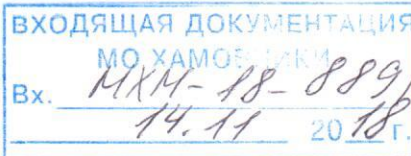 ВХОДЯЩАЯ ДОКУМЕНТАЦИЯ
МО ХАМОВНИКИ
Вх. МХМ-18-889
14.11 2018 г.